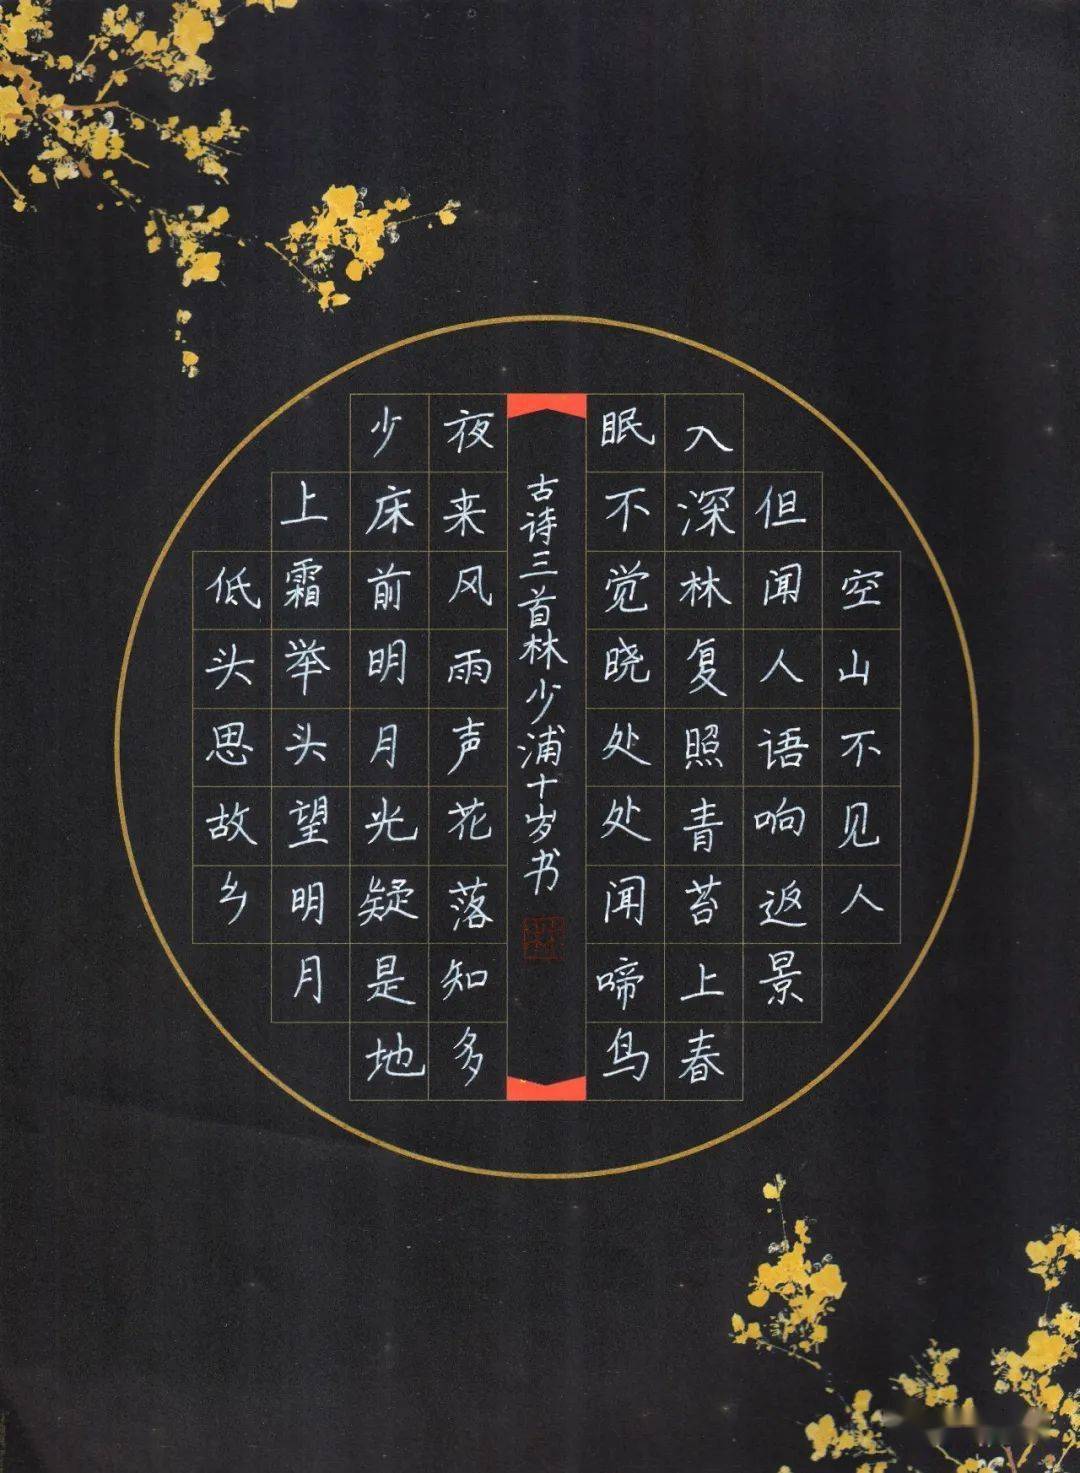 空山不见人
但闻人语响返景
入深林复照青苔上春
眠不觉晓处处闻啼鸟
古诗三首林少浦十岁书
夜来风雨声花落知多
少床前明月光疑是地
上霜举头望明月
低头思故乡